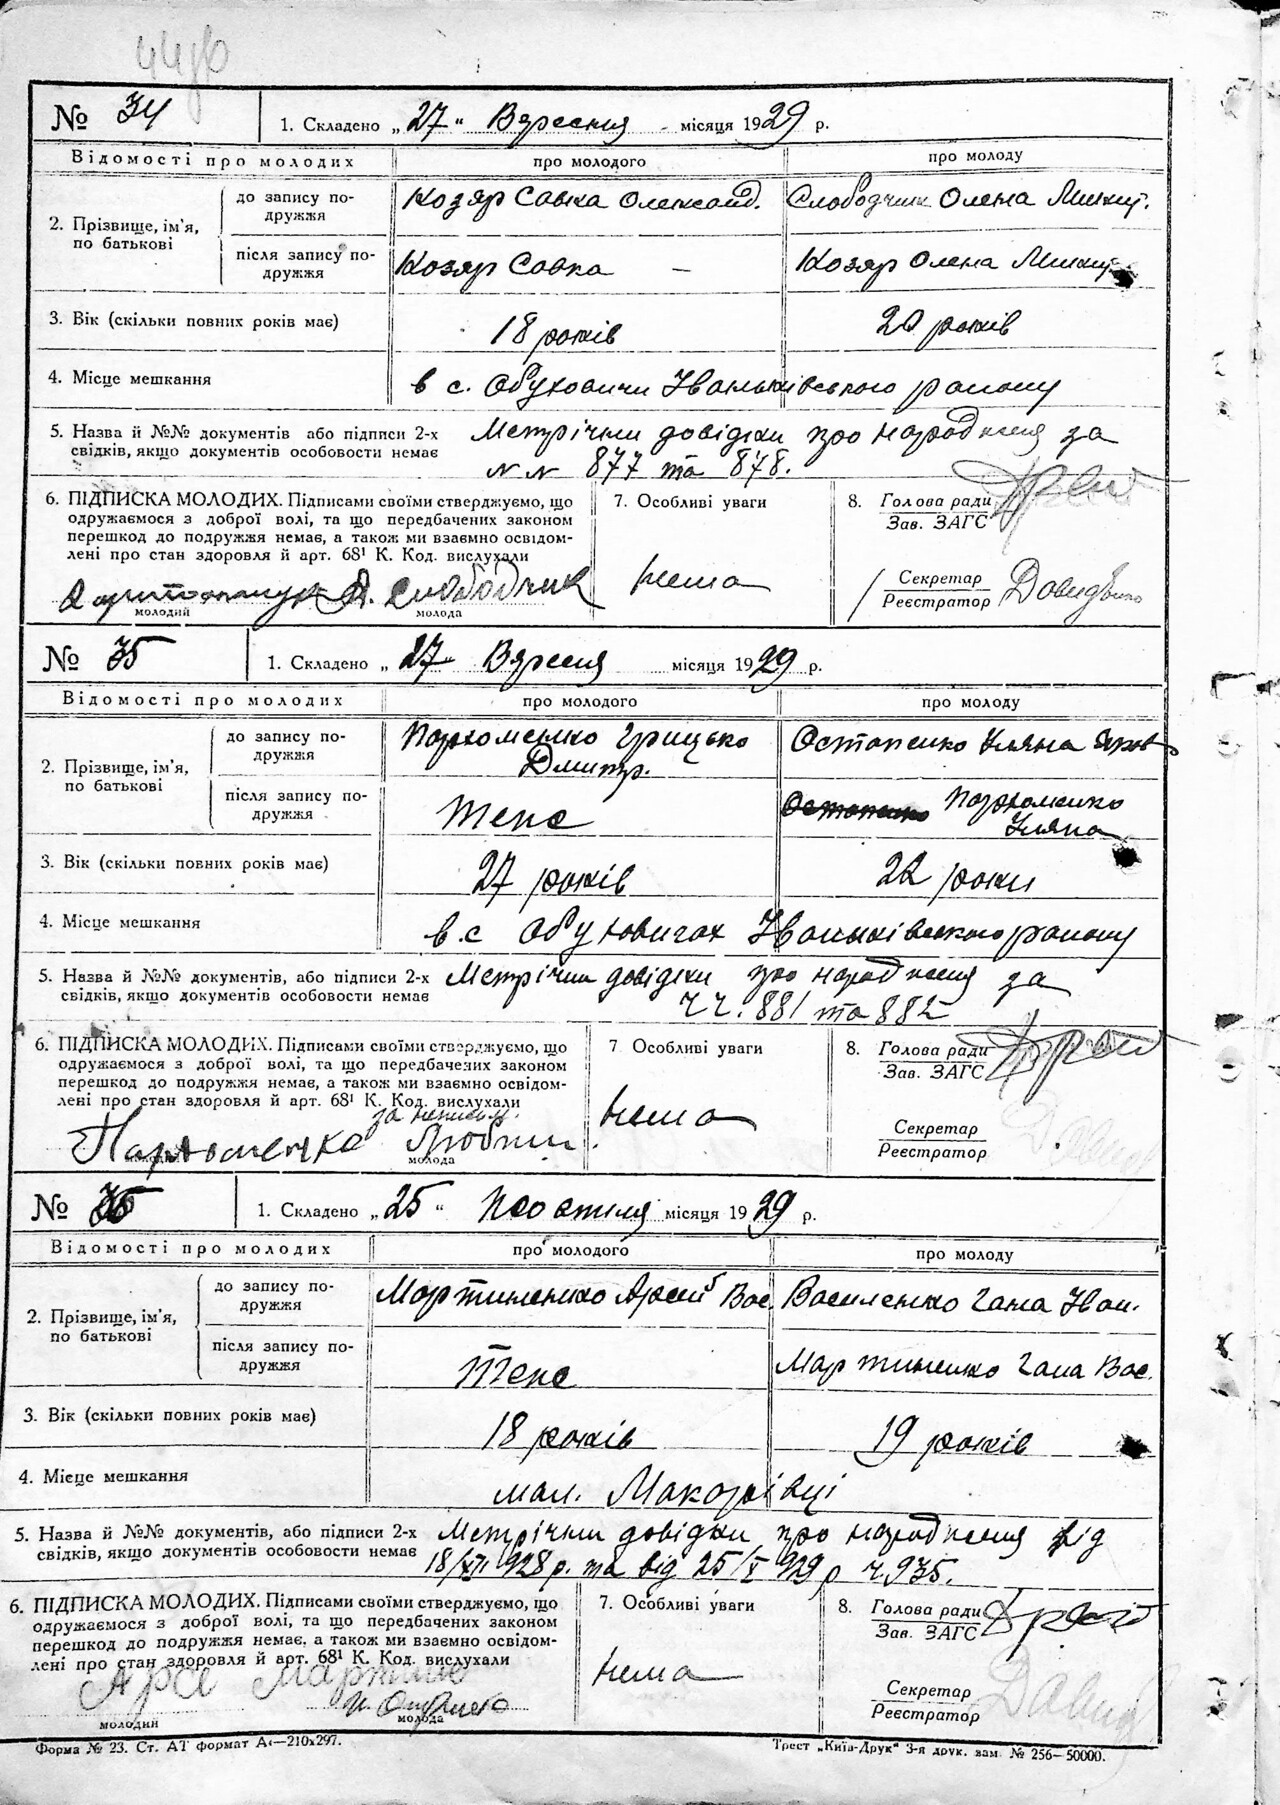 № 34 1. Складено „27“ Вересня місяця 1929 р.
Відомості про молодих про молодого про молоду
2. Прізвище, ім'я, по батькові до запису по-
дружжя Козяр Савка Олександ. Слободчик Олена Микит.
після запису по-
дружжя Козяр Савка — Козяр Олена Микит.
3. Вік (скільки повних років має) 18 років 20 років
4. Місце мешкання в с. Обуховичи Іваньківського району
5. Назва й №№ документів або підписи 2-х Метрічни довідки про народження за
свідків, якщо документів особовости немає N N 877 та 878.
6. ПІДПИСКА МОЛОДИХ. Підписами своїми стверджуємо, що
одружаємося з доброї волі, та що передбачених законом
перешкод до подружжя немає, а також ми взаємно освідом-
лені про стан здоровля й арт. 68¹ К. Код. вислухали
Слободчик
молодий молода
7. Особливі уваги
нема
8. Голова ради
Зав. ЗАГС
Секретар
Реєстратор
№ 35 1. Складено „27“ Вересня місяця 1929 р.
Відомості про молодих про молодого про молоду
2. Прізвище, ім'я,
по батькові до запису по-
дружжя Пархоменко Грицько
Дмитр. Остапенко Уляна Яков
після запису по-
дружжя Теж Остапенко Пархоменко
Уляна
3. Вік (скільки повних років має) 27 років 22 роки
4. Місце мешкання в.с Обуховичах Іваньківського району
5. Назва й №№ документів, або підписи 2-х Метрічни довідки про народження за
свідків, якщо документів особовости немає ч ч. 881 та 882
6. ПІДПИСКА МОЛОДИХ. Підписами своїми стверджуємо, що
одружаємося з доброї волі, та що передбачених законом
перешкод до подружжя немає, а також ми взаємно освідом-
лені про стан здоровля й арт. 68¹ К. Код. вислухали
за неписьм.
Пархоменко
молода
7 Особливі уваги
нема
8. Голова ради
Зав. ЗАГС
Секретар
Реєстратор
№ 1. Складено „25“ місяця 1929 р.
Відомості про молодих про молодого про молоду
2. Прізвище, ім'я,
по батькові до запису по-
дружжя Мартиненко Арсей Вас. Василенко Гана Іван.
після запису по-
дружжя Теж Мартиненко Гана Вас.
3. Вік (скільки повних років має) 18 років 19 років
4. Місце мешкання мал. Макарівці
5. Назва й №№ документів, або підписи 2-х Метрічни довідки про народження від
свідків, якщо документів особовости немає 18/XII 928 р. та від 25/X 929 р ч. 935.
6. ПІДПИСКА МОЛОДИХ. Підписами своїми стверджуємо, що
одружаємося з доброї волі, та що передбачених законом
перешкод до подружжя немає, а також ми взаємно освідом-
лені про стан здоровля й арт. 68¹ К. Код. вислухали
молодий молода
7. Особливі уваги
нема
8. Голова ради
Зав. ЗАГС
Секретар
Реєстратор
Форма № 23. Ст. АТ формат А₄—210x297. Трест „Київ-Друк“ 3-я друк. зам. № 256—50000.